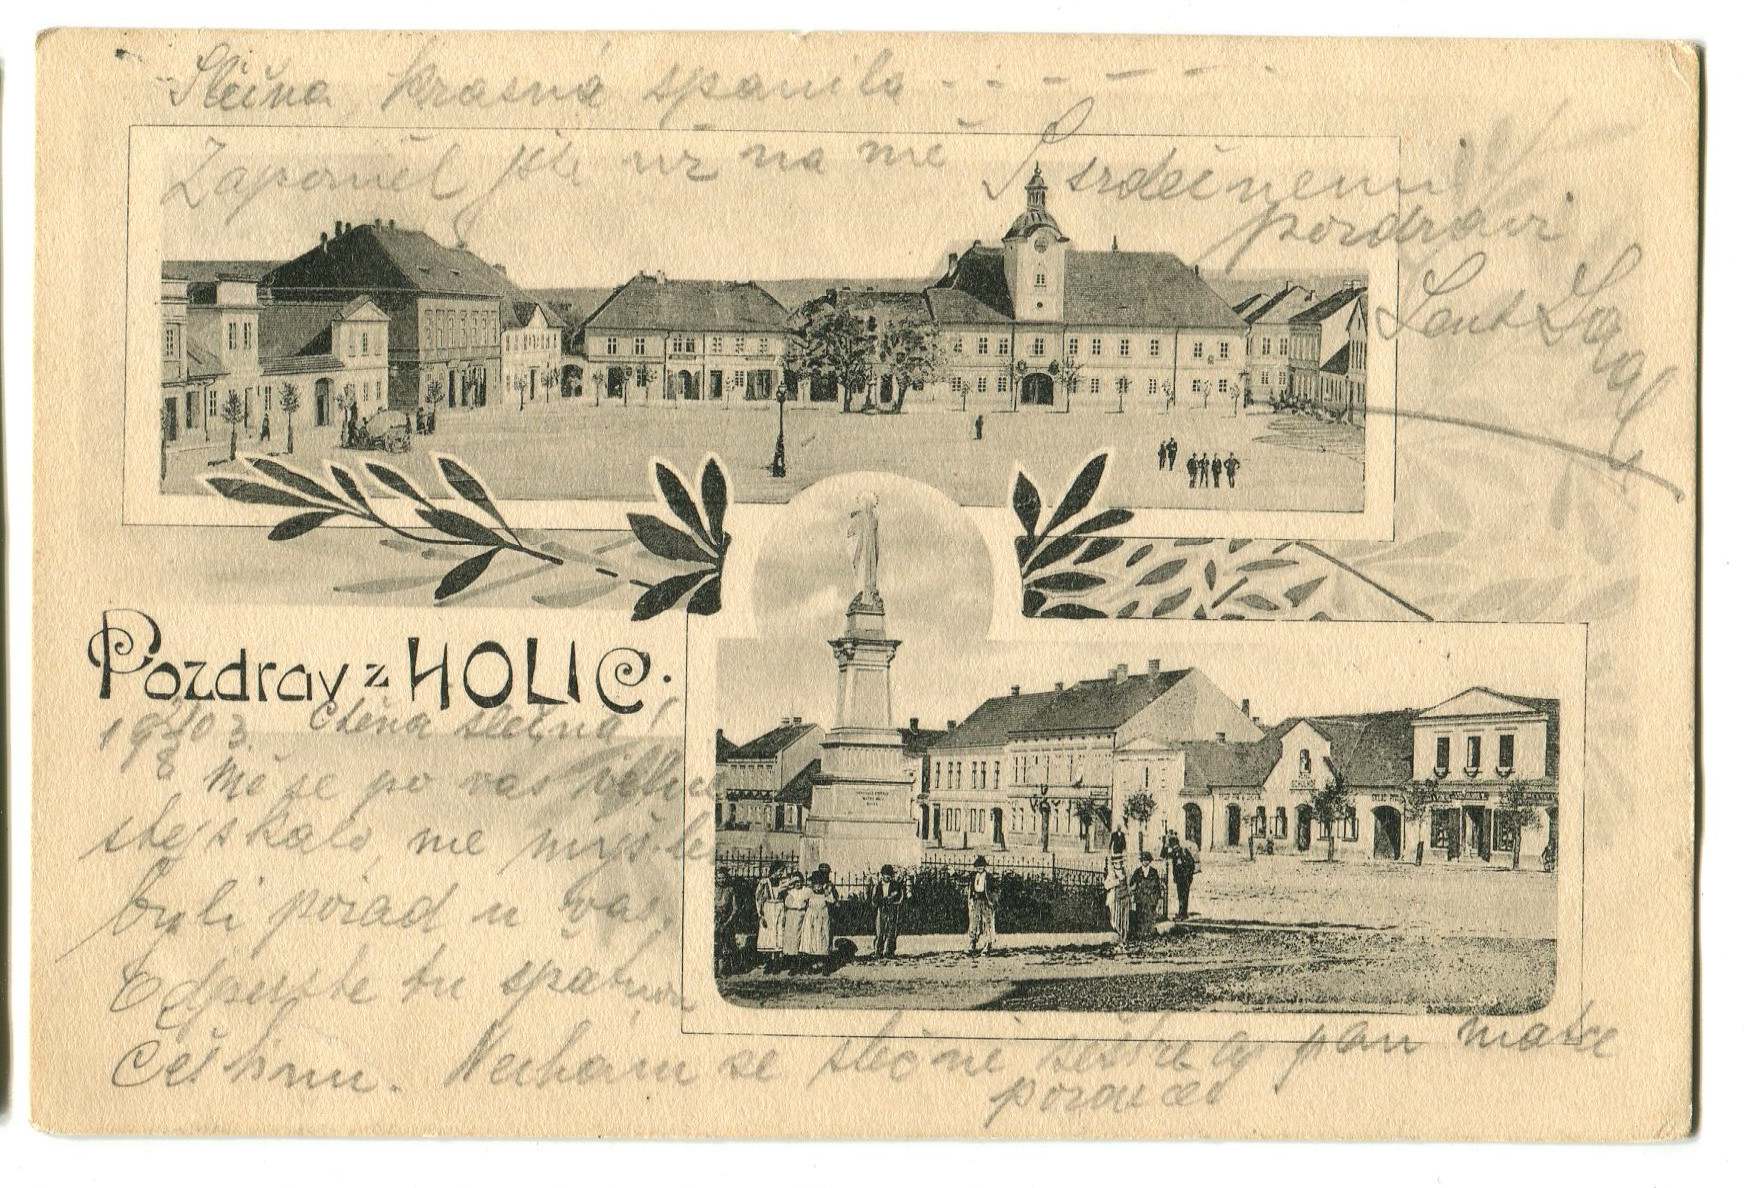 Slečna, krasná spanila - - - - -
Zapoměl jste už na mě
S srdečnemu
pozdravi
Pozdrav z HOLIC.
19 20/8 03. Ctěna slečna!
Mě se po vas velice
stejskalo, me myšle
byli pořad u vas.
Odpuste tu špatnou
češtinu. Nechám se slečně sestře aj pan matce
poručeó